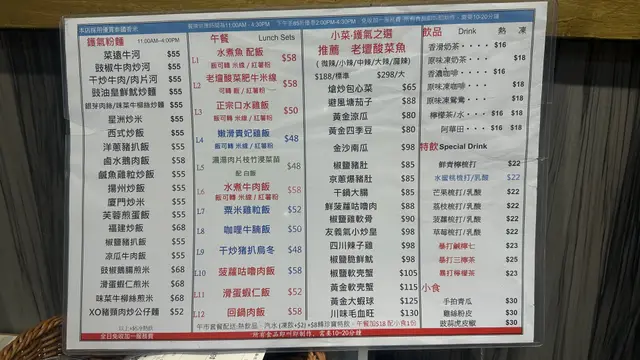 本店採用優質泰國香米
鑊氣粉麵 11:00AM-4:00PM
菜遠牛河 $55
豉椒牛肉炒河 $55
干炒牛肉/肉片河 $55
豉油皇鮮魷炒麵 $55
銀芽肉絲/味菜牛柳絲炒麵 $55
星洲炒米 $55
西式炒飯 $55
洋蔥豬扒飯 $55
鹵水鵝肉飯 $58
鹹魚雞粒炒飯 $55
揚州炒飯 $55
廈門炒米 $55
芙蓉煎蛋飯 $55
福建炒飯 $68
椒鹽豬扒飯 $55
豉椒鵝腸煎米 $68
滑蛋蝦仁煎米 $68
味菜牛柳絲煎米 $68
XO豬頸肉炒公仔麵 $52
全日免收加一服務費
午餐 Lunch Sets
L1 水煮魚 配飯 $58
飯可轉 米線 / 紅薯粉
L2 老壇酸菜肥牛米線 $58
可轉 飯 / 紅薯粉
L3 正宗口水雞飯 $50
飯可轉 米線 / 紅薯粉
L4 嫩滑貴妃雞飯 $48
飯可轉 米線 / 紅薯粉
L5 滾湯肉片枝竹浸菜苗 $48
配 白飯
L6 水煮牛肉飯 $58
飯可轉 米線 / 紅薯粉
L7 粟米雞粒飯 $52
L8 咖哩牛腩飯 $50
L9 干炒豬扒烏冬 $48
L10 菠蘿咕嚕肉飯 $58
L11 滑蛋蝦仁飯 $52
L12 回鍋肉飯 $58
小菜·鑊氣之選
推薦 老壇酸菜魚
(微辣/小辣/中辣/大辣/魔辣)
$188/標準 $298/大
熗炒包心菜 $65
避風塘茄子 $88
黃金涼瓜 $80
黃金四季豆 $80
金沙南瓜 $98
椒鹽豬肚 $85
京蔥爆豬肚 $85
干鍋大腸 $85
鮮菠蘿咕嚕肉 $88
椒鹽雞軟骨 $90
友義氣小炒皇 $98
四川辣子雞 $98
椒鹽脆鮮魷 $98
椒鹽軟壳蟹 $115
黃金軟壳蟹 $115
黃金大蝦球 $125
川味毛血旺 $130
飲品 Drink 熱 凍
香滑奶茶 $16
原味凍奶茶 $18
香濃咖啡 $16
原味凍咖啡 $18
原味凍鴛鴦 $18
檸檬茶/水 $16 $18
阿華田 $16 $18
特飲Special Drink
鮮青檸梳打 $22
水蜜桃梳打/乳酸 $22
芒果梳打/乳酸 $22
荔枝梳打/乳酸 $22
菠蘿梳打/乳酸 $22
草莓梳打/乳酸 $22
暴打鹹檸七 $23
暴打三檸茶 $25
暴打檸檬茶 $23
小食
手拍青瓜 $30
雞絲粉皮 $30
豉蒜虎皮椒 $30
所有食品即叫即制作，需要10-20分鐘